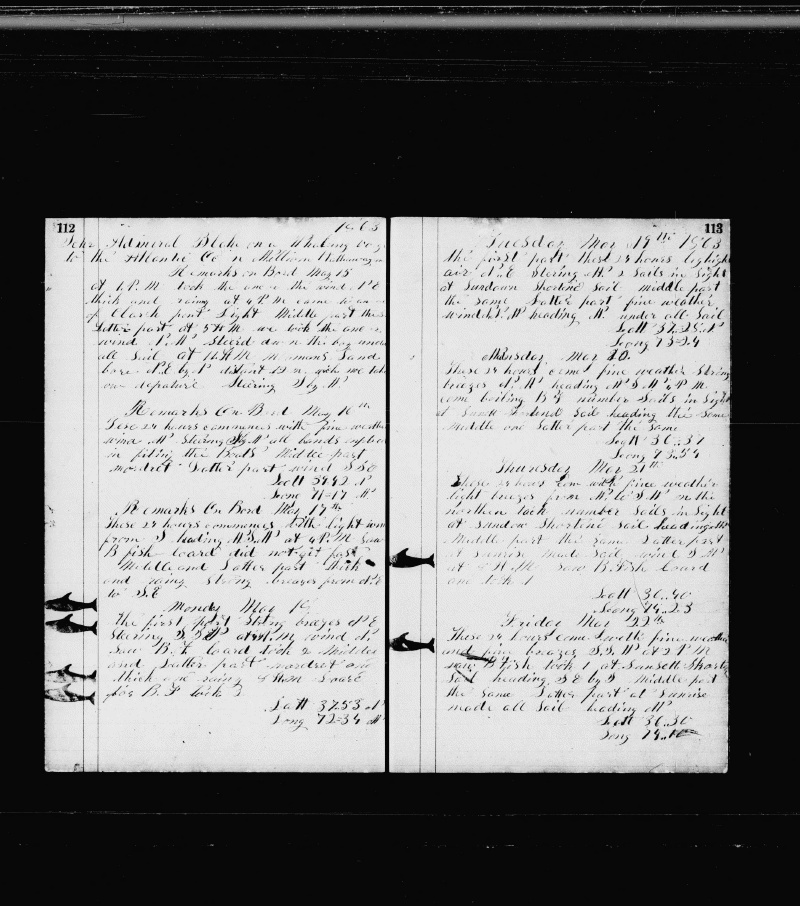 112
1863
Schr Admiral Blake on a Whaling
to the Atlantic William Hathaway
Remarks on Bord May 15
at 1 P.M. took the the wind N E
thick and rainy at 4 P.M came
of Clark pont Light Middle part the
Latter part at 5 A M we took the
wind N.W. Steerd down the bay under
all Sail at 11 A M Nomans Land
bore N.E by N distant 12 m
our depature Steering S by W
Remarks On Bord May 16th
24 hours commences with fine weather
wind W Steering S by W all hands
in fiting the Boats Middle part
mordret Latter part wind S S O
Latt 39 42 N
Long 71=17 W
Remarks On Bord May 17th
These 24 hours commences with light
from S heading W.S.W at 4 P.M Saw
B fish loard did not git fast
Middle and Latter part thick
and rainy Strong breazes from N.E
to S.E
Monday May 18
The first part Strong breazes N E
Steering S.S.W at 4 P.M wind N
Saw B.F. loard took 2 Middle
and Latter part mordret and
thick and rainy
for B.F took 2
Latt 37.53 N
Long 72=34 W
113
Tuesday May 19th 1863
the first part these 24 hours by light
air N.E Stering W 2 Sails in Sight
at Sundown Shortend Sail middle part
the same Latter part fine weather
wind N.W heading W under all Sail
Latt 37.25 N
Loong 73=24
May 20
These 24 hours come fine weather Strong
breazes N.W heading W S W 4 P.M
come boiling B.F number Sails in Sight
at Sunset Shortend Sail heading the Same
Middle and Latter part the Same
36..37
Loong 73.54
Thursday May 21th
These 24 hours Com with fine weather
light breazes from W to S.W on the
northen tack number Sails in Sight
at Sundow Shortend Sail heading the
Middle part the Same Latter part
at Sunrise made Sail wind S W
at A.M. Saw B.Fish loard
and took 1
Latt 36..40
Loong 74..23
Friday May 22th
These 24 hours come with fine weather
and fine breazes S.S.W at 2 P M
saw B fish took 1 at Sunsett Shorten
Sail heading S E by S Middle part
the Same Latter part at Sunrise
made all Sail heading W
Latt 36..30
Long 74..